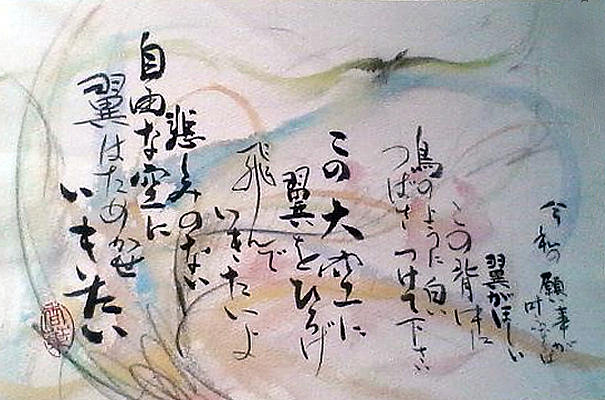 今私の願い事が
叶うならば
翼がほしい
この背中に
鳥のように白い
つばさ つけて下さい
この大空に
翼をひろげ
飛んで
いきたいよ
悲しみのない
自由な空に
翼はためかせ
いきたい